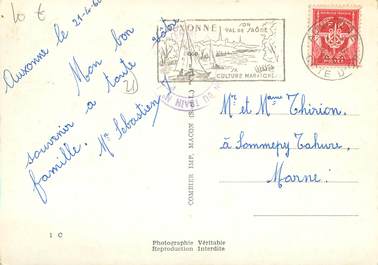 10 €
Auxonne le 21-4-60
Mon bon
souvenir à toute votre
famille.
Mr Sebastien
20
AUXONNE
SON
VAL DE SAÔNE
SA
CULTURE MARAICHÈRE
Mr et Mame Thirion,
à Sommepy Tahure,
Marne.
COMBIER IMP. MACON
1 C
Photographie Véritable
Reproduction Interdite